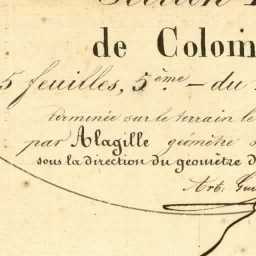 de Colom
5 feuilles, 5ème. - du
terminée sur le terrain le
par Alagille géomètre
sous la direction du geomètre d
Arb.